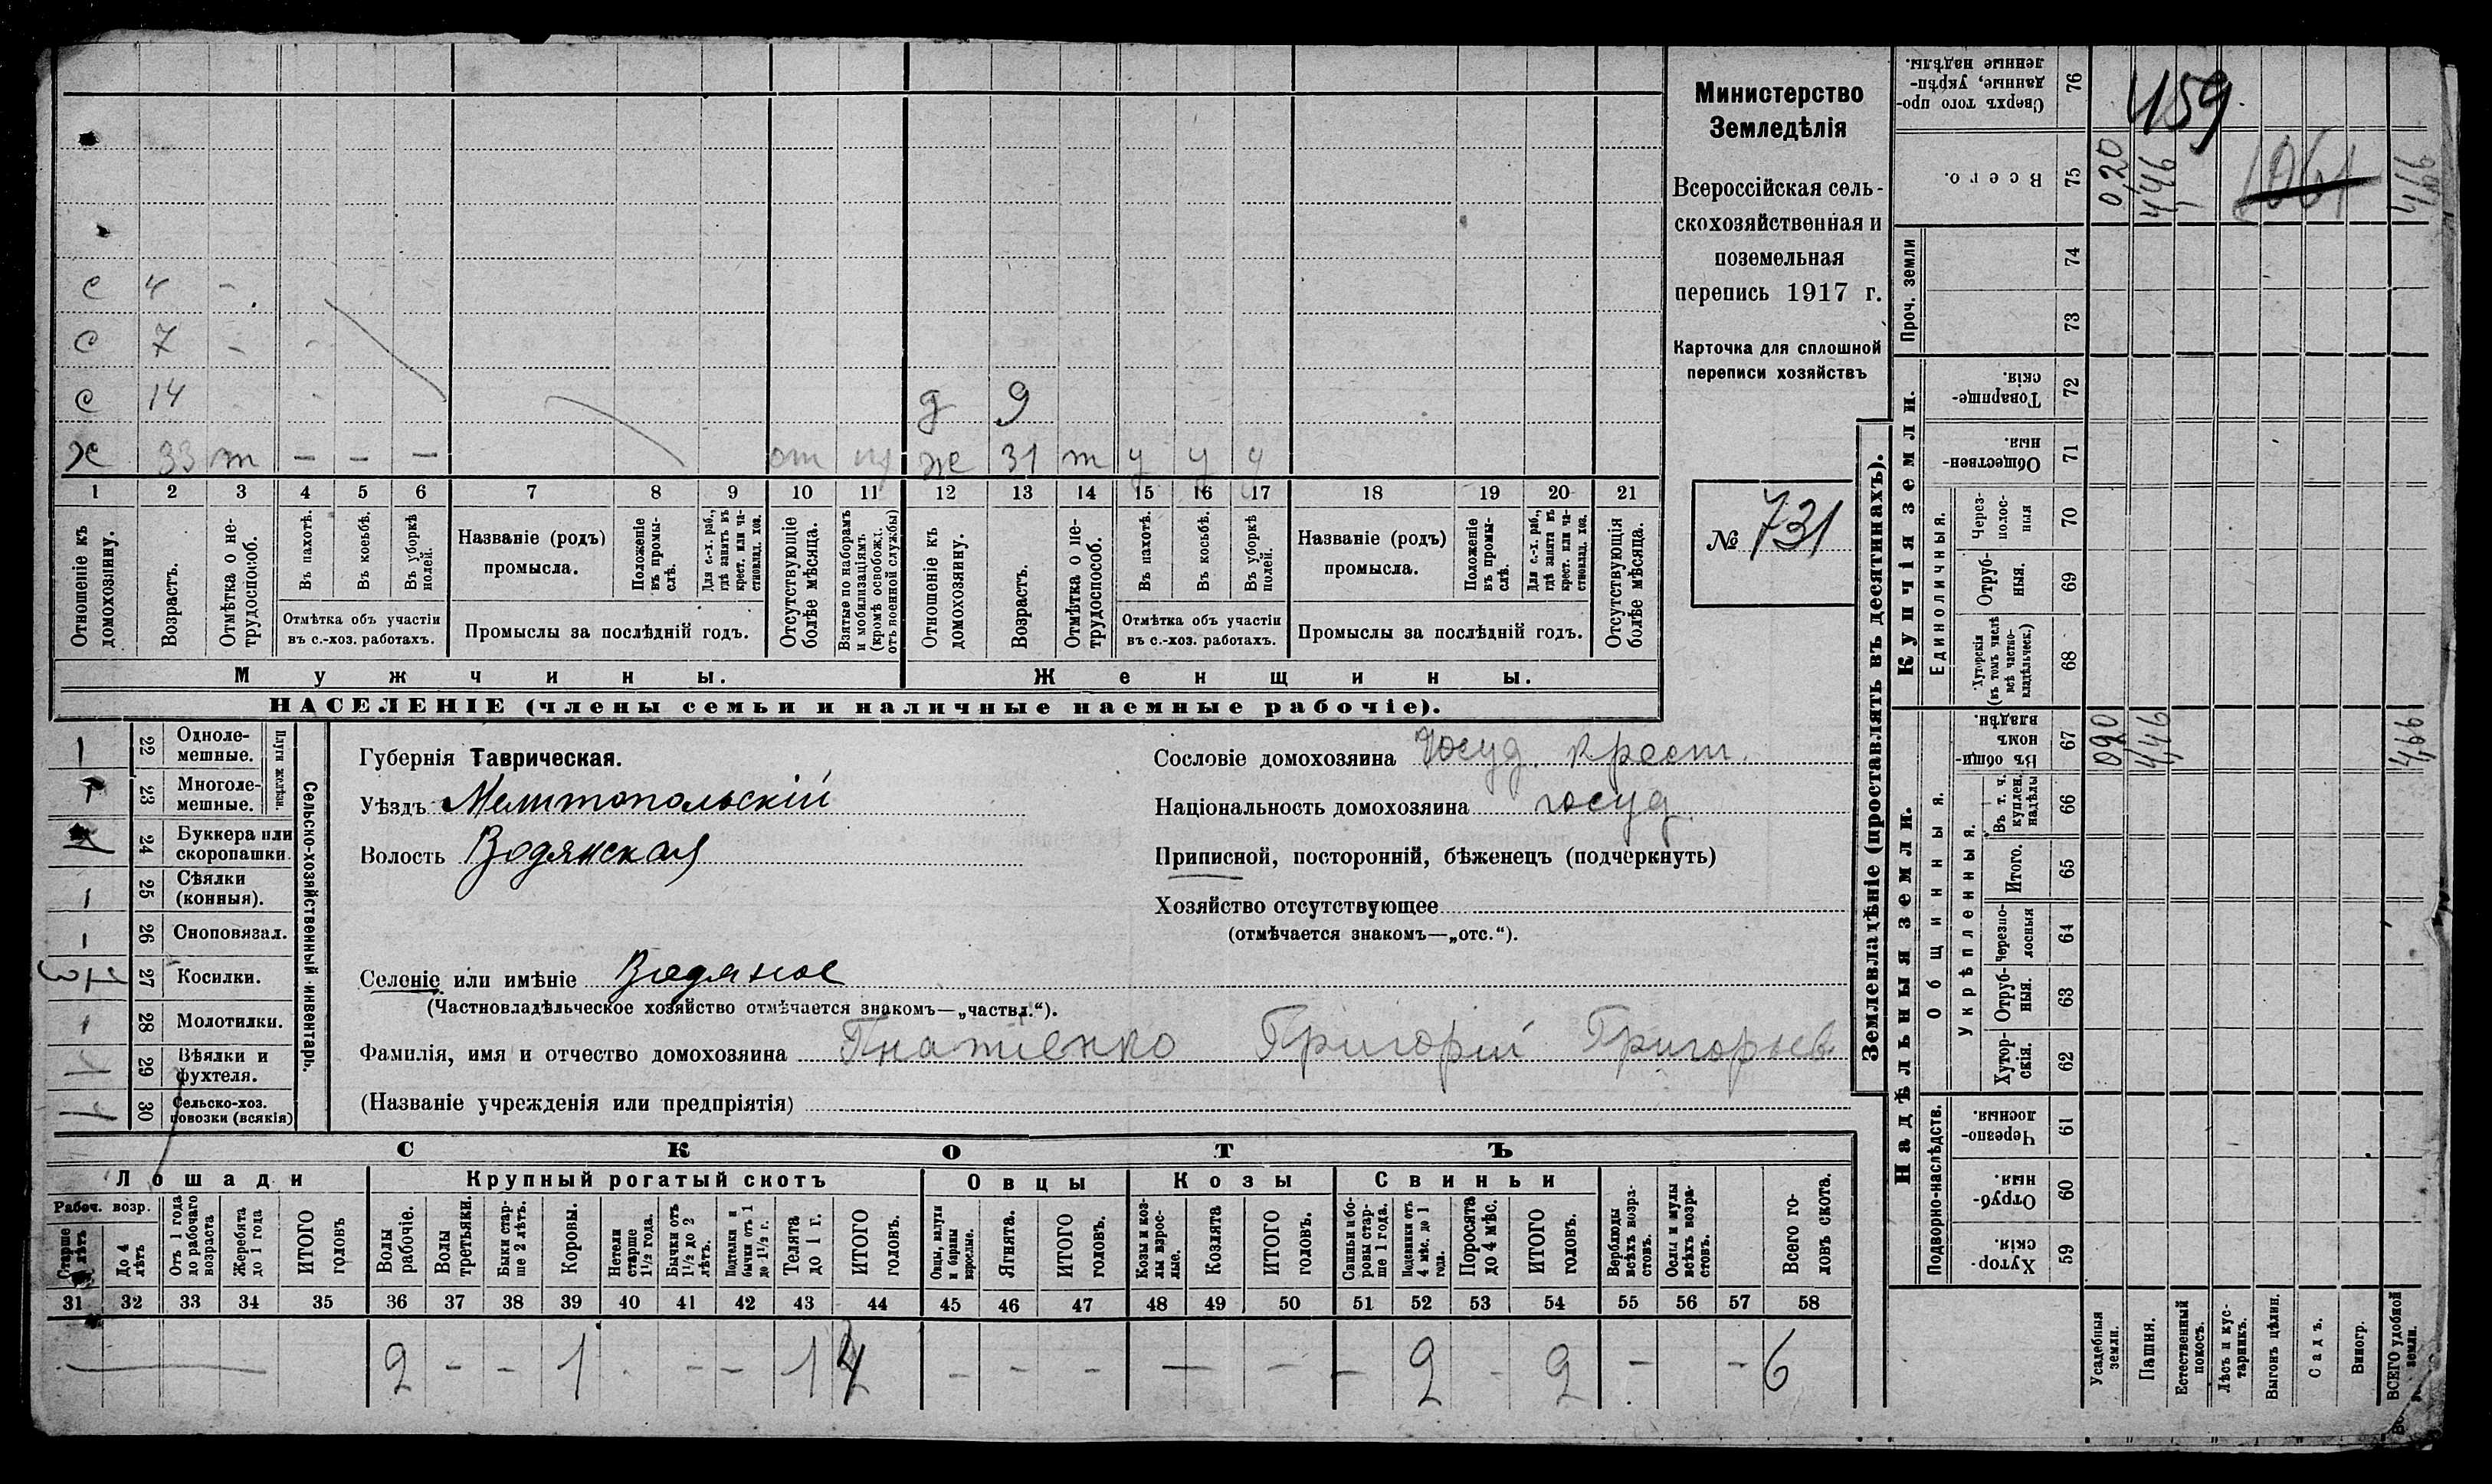 Министерство
Земледѣлія
Всероссійская сель-
скохозяйственная и
поземельная
перепись 1917 г.
Карточка для сплошной
переписи хозяйствъ
№ 731
с 4 -
с 7 - -
с 14 - - д 9
х 33 т - - - от ж 31 т у у у
1 2 3 4 5 6 7 8 9 10 11 12 13 14 15 16 17 18 19 20 21
Отношеніе къ домохозяину.
Возрастъ.
Отмѣтка о не-трудоспособ.
Въ пахотѣ.
Въ косьбѣ.
Въ уборкѣ полей.
Отмѣтка объ участіи
въ с.-хоз. работахъ.
Названіе (родъ)
промысла.
Положеніе въ промы-слѣ.
Для с.-х. раб., гдѣ занятъ въ крест. или ча-стновлад. хоз.
Промыслы за послѣдній годъ.
Отсутствующіе болѣе мѣсяца.
Взятые по наборамъ и мобилизаціямъ (кромѣ освобожд. отъ военной службы)
Отношеніе къ домохозяину.
Возрастъ.
Отмѣтка о не-трудоспособ.
Въ пахотѣ.
Въ косьбѣ.
Въ уборкѣ полей.
Отмѣтка объ участіи
въ с.-хоз. работахъ.
Названіе (родъ)
промысла.
Положеніе въ промы-слѣ.
Для с.-х. раб., гдѣ занята въ крест. или ча-стновлад. хоз.
Промыслы за послѣдній годъ.
Отсутствующія болѣе мѣсяца.
Мужчины. Женщины.
НАСЕЛЕНІЕ (члены семьи и наличные наемные рабочіе).
Сельско-хозяйственный инвентарь.
Плуги желѣзн.
22 Одноле-мешные.
23 Многоле-мешные.
24 Буккера или скоропашки.
25 Сѣялки (конныя).
26 Сноповязал.
27 Косилки.
28 Молотилки.
29 Вѣялки и фухтеля.
30 Сельско-хоз. повозки (всякія)
Губернія Таврическая.
Уѣздъ Мелитопольскій
Волость Водянская
Селеніе или имѣніе Водяное
(Частновладѣльческое хозяйство отмѣчается знакомъ—„частвл.“).
Фамилія, имя и отчество домохозяина Гнатенко Григорій Григорьев
(Названіе учрежденія или предпріятія)
Сословіе домохозяина Госуд. крест.
Національность домохозяина госуд
Приписной, посторонній, бѣженецъ (подчеркнуть)
Хозяйство отсутствующее
(отмѣчается знакомъ—„отс.“).
СКОТЪ
Лошади Крупный рогатый скотъ Овцы Козы Свиньи
Рабоч. возр.
Старше 4 лѣтъ
До 4 лѣтъ
Отъ 1 года до рабочаго возраста
Жеребята до 1 года
ИТОГО головъ
Волы рабочіе.
Волы третьяки.
Быки стар-ше 2 лѣтъ.
Коровы.
Нетели старше 1½ года.
Бычки отъ 1½ до 2 лѣтъ.
Подтелки и бычки отъ 1 до 1½ г.
Телята до 1 г.
ИТОГО головъ.
Овцы, валухи и бараны взрослые.
Ягнята.
ИТОГО головъ.
Козы и коз-лы взрос-лые.
Козлята
ИТОГО головъ.
Свиньи и бо-ровы стар-ше 1 года.
Подсвинки отъ 4 мѣс. до 1 года.
Поросята до 4 мѣс.
ИТОГО головъ.
Верблюды всѣхъ возра-стовъ.
Ослы и мулы всѣхъ возра-стовъ.
Всего го-ловъ скота.
31 32 33 34 35 36 37 38 39 40 41 42 43 44 45 46 47 48 49 50 51 52 53 54 55 56 57 58
2 - - 1 - - 1 4 - - - - - - 2 - 2 - - 6
Землевладѣніе (проставлять въ десятинахъ).
Надѣльныя земли. Купчія земли. Проч. земли
Подворно-наслѣдств. Общинныя. Укрѣпленныя. Единоличныя.
59 Хутор-скія.
60 Отруб-ныя.
61 Черезпо-лосныя
62 Хутор-скія.
63 Отруб-ныя.
64 Черезпо-лосныя
65 Итого.
66 Въ т. ч. куплен. надѣлы
67 Въ общи-номъ владѣн.
68 Хуторскія (въ томъ числѣ всѣ частно-владѣльческ.)
69 Отруб-ныя.
70 Через-полос-ныя
71 Обществен-ныя.
72 Товарище-скія.
73
74
75 Всего.
76 Сверхъ того про-данные, укрѣп-ленные надѣлы.
Усадебныя земли. 0,20
Пашня. 4,46 4,46
Естественный покосъ.
Лѣсъ и кус-тарникъ.
Выгонъ цѣлин.
Садъ.
Виногр.
ВСЕГО удобной земли. 4,66
459
1061